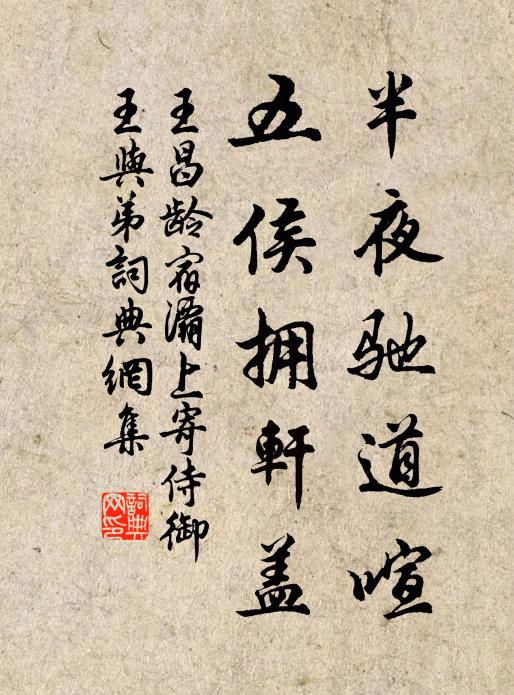 半夜驰道喧
五侯拥軒盖
王昌龄宿灞上寄侍御
王與弟詞典網集
詞典
网印